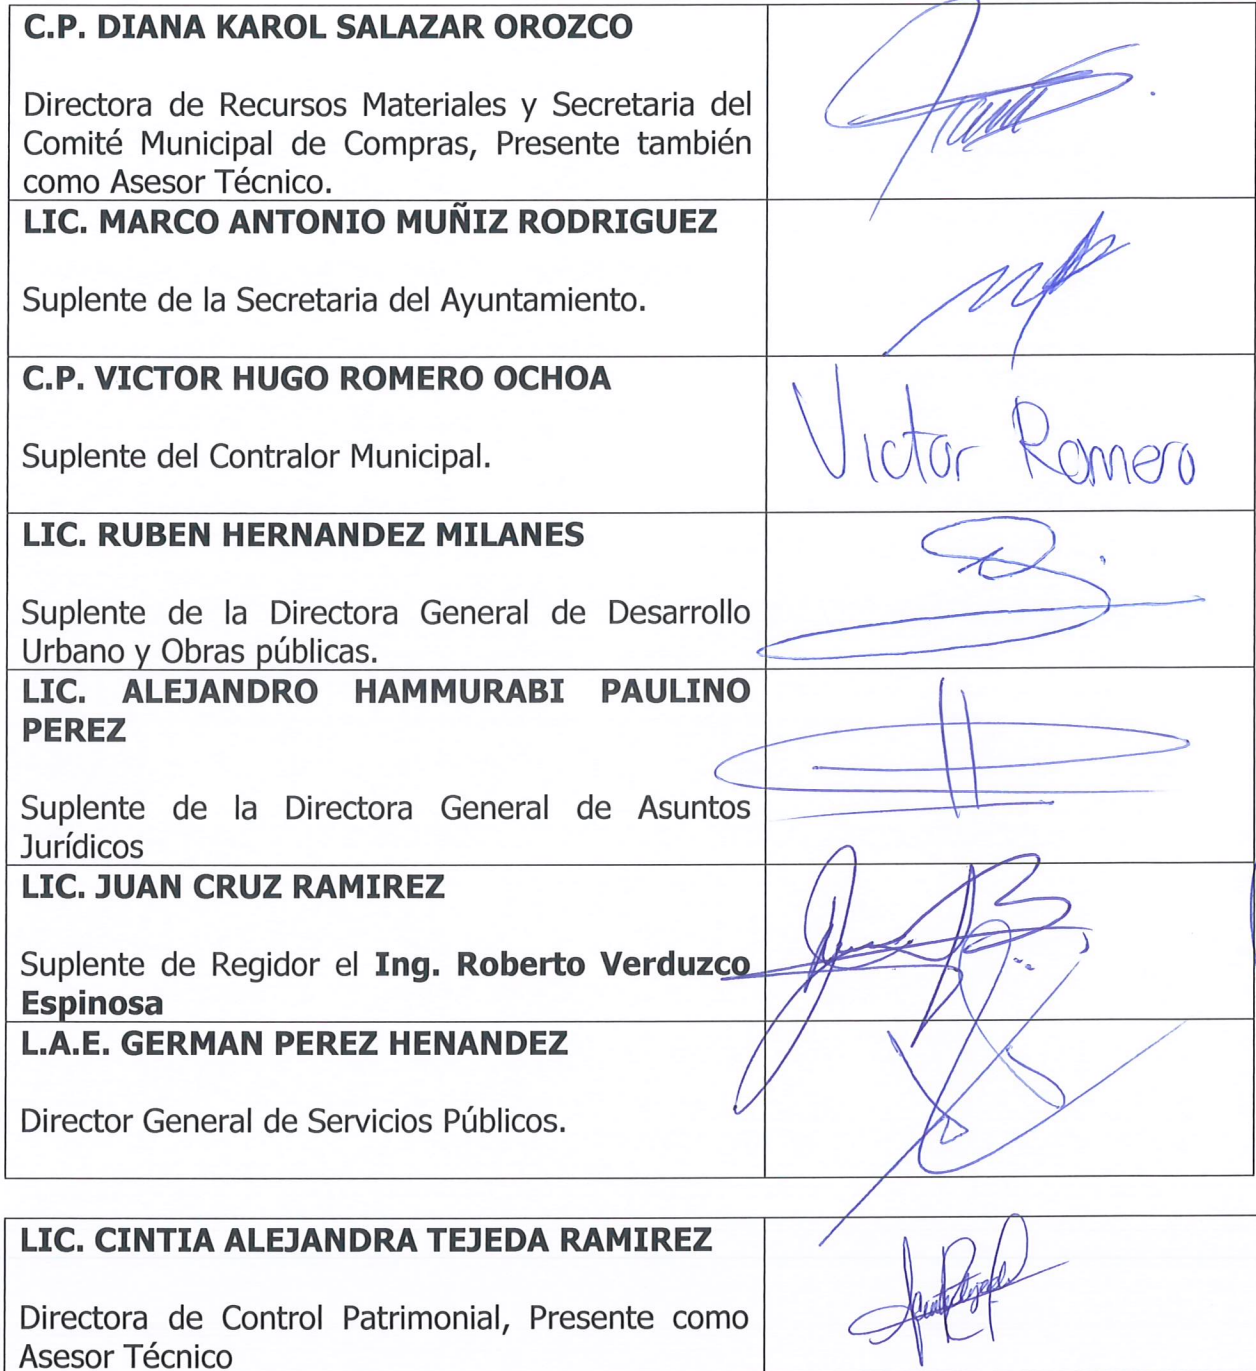 C.P. DIANA KAROL SALAZAR OROZCO
Directora de Recursos Materiales y Secretaria del
Comité Municipal de Compras, Presente también
como Asesor Técnico.
LIC. MARCO ANTONIO MUÑIZ RODRIGUEZ
Suplente de la Secretaria del Ayuntamiento.
C.P. VICTOR HUGO ROMERO OCHOA
Suplente del Contralor Municipal.
Victor Romero
LIC. RUBEN HERNANDEZ MILANES
Suplente de la Directora General de Desarrollo
Urbano y Obras públicas.
LIC. ALEJANDRO HAMMURABI PAULINO
PEREZ
Suplente de la Directora General de Asuntos
Jurídicos
LIC. JUAN CRUZ RAMIREZ
Suplente de Regidor el Ing. Roberto Verduzco
Espinosa
L.A.E. GERMAN PEREZ HENANDEZ
Director General de Servicios Públicos.
LIC. CINTIA ALEJANDRA TEJEDA RAMIREZ
Directora de Control Patrimonial, Presente como
Asesor Técnico